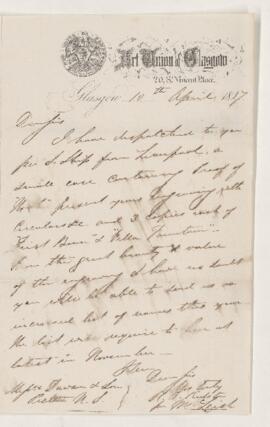 Art Union of Glasgow
20, St. Vincent Place,
Glasgow 10th April 1857
Dear Sirs
I have despatched to you
per S. Ship from Liverpool, a
small case containing Proof of
present years Engraving with
Circulars and 3 Copies each of
"First Born" & "Villa Fountain".
From the great beauty & value
of the engraving I have no doubt
you will be able to send us an
increased list of names this year
the list will require to be here at
latest in November
Dear Sirs
Messrs Dawson & Son
Pictou N.S.